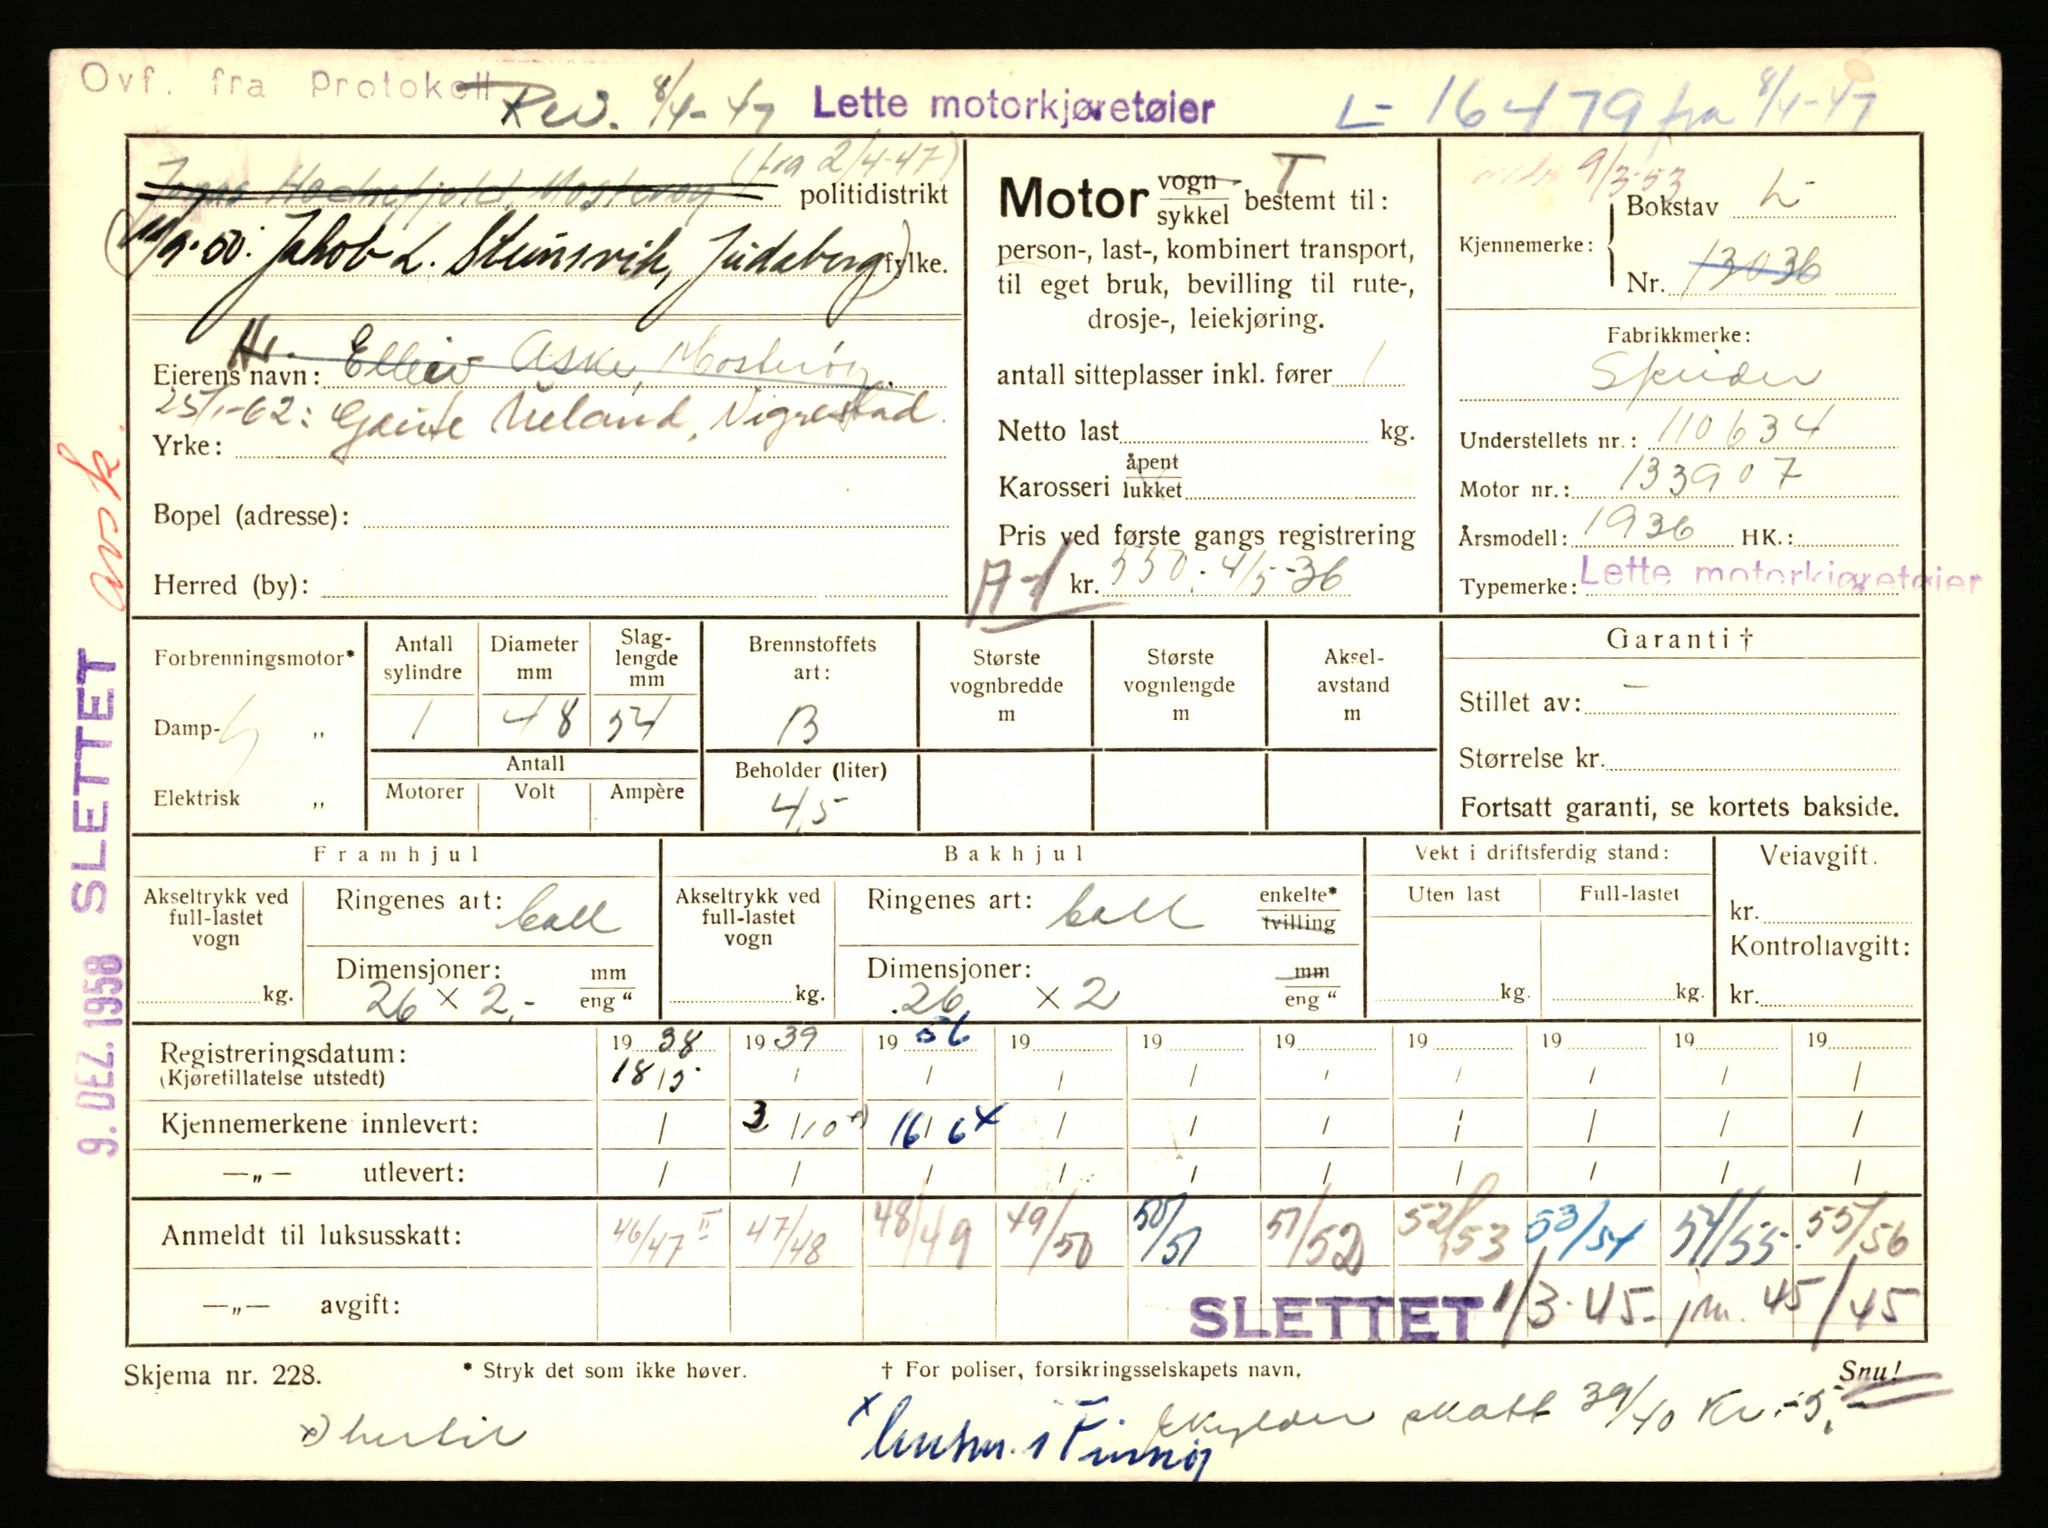 Ovf. fra Protokoll
Rev. 8/4-47
Lette motorkjøretøier
L- 16479 fra 8/4-47
(fra 2/4-47)
politidistrikt
9-50: Jakob L. Steinsvik, Judaberg)
fylke.
Eierens navn: Elliv Aske, Mosterøy.
25/1-62: Gaute Ueland, Nigrestad.
Yrke:
Bopel (adresse):
Herred (by):
Motor vogn sykkel bestemt til:
T
person-, last-, kombinert transport,
til eget bruk, bevilling til rute-,
drosje-, leiekjøring.
antall sitteplasser inkl. fører 1
Netto last kg.
Karosseri åpent lukket
Pris ved første gangs registrering
A-1 kr. 550.- 4/5-36
9/3-53
Kjennemerke: Bokstav L-
Nr. 13036
Fabrikkmerke:
Spider
Understellets nr.: 110634
Motor nr.: 133907
Årsmodell: 1936 HK.:
Typemerke: Lette motorkjøretøier
Forbrenningsmotor*
Damp- „
Elektrisk „
Antall sylindre
1
Diameter mm
48
Slag-lengde mm
54
Antall
Motorer Volt Ampère
Brennstoffets art:
B
Beholder (liter)
4,5
Største vognbredde m
Største vognlengde m
Aksel-avstand m
Garanti †
Stillet av: -
Størrelse kr.
Fortsatt garanti, se kortets bakside.
Framhjul
Akseltrykk ved full-lastet vogn
kg.
Ringenes art: ball
Dimensjoner: mm eng "
26 x 2.-
Bakhjul
Akseltrykk ved full-lastet vogn
kg.
Ringenes art: ball enkelte* tvilling
Dimensjoner: mm eng "
26 x 2
Vekt i driftsferdig stand:
Uten last Full-lastet
kg. kg.
Veiavgift.
kr.
Kontrollavgift:
kr.
Registreringsdatum: 19 38 19 39 19 56 19 19 19 19 19 19 19
(Kjøretillatelse utstedt) 18/5 / / / / / / / / /
Kjennemerkene innlevert: / 3/10 x) 16/6 x / / / / / / /
—„— utlevert: / / / / / / / / / /
Anmeldt til luksusskatt: 46/47 II 47/48 48/49 49/50 50/51 51/52 52/53 53/54 54/55 55/56
—„— avgift: SLETTET 1/3-45- jnr. 45/45
Skjema nr. 228.
* Stryk det som ikke høver.
† For poliser, forsikringsselskapets navn.
Snu!
x)
x
i Finnøy
Skylder skatt 39/40 Kr. 5,-
9. DEZ. 1958 SLETTET avsk.